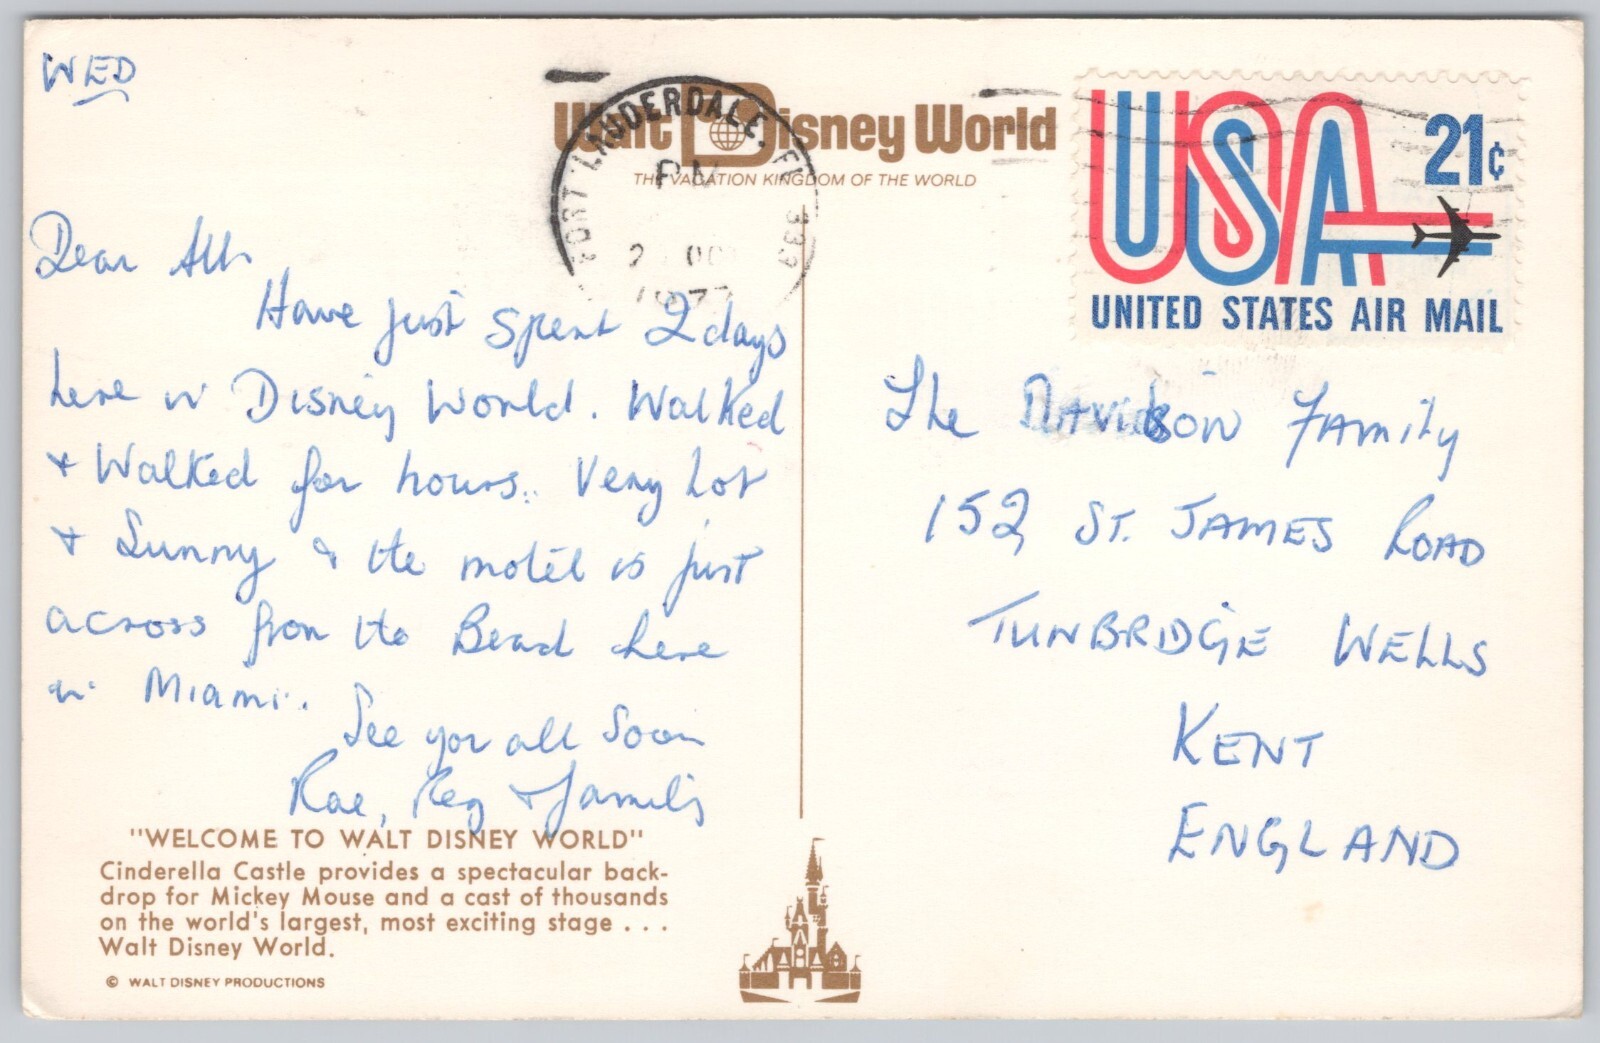 WED
Walt Disney World
THE VACATION KINGDOM OF THE WORLD
FORT LAUDERDALE, FL 333
PM
2 OC
1977
USA 21¢
UNITED STATES AIR MAIL
Dear All,
Have just spent 2 days
here in Disney World. Walked
+ Walked for hours.. Very hot
+ Sunny & the motel is just
across from the Beach here
in Miami.
See you all soon
Rae, Reg + family
The Davidson Family
152 ST. JAMES ROAD
TUNBRIDGE WELLS
KENT
ENGLAND
"WELCOME TO WALT DISNEY WORLD"
Cinderella Castle provides a spectacular back-
drop for Mickey Mouse and a cast of thousands
on the world's largest, most exciting stage . . .
Walt Disney World.
© WALT DISNEY PRODUCTIONS